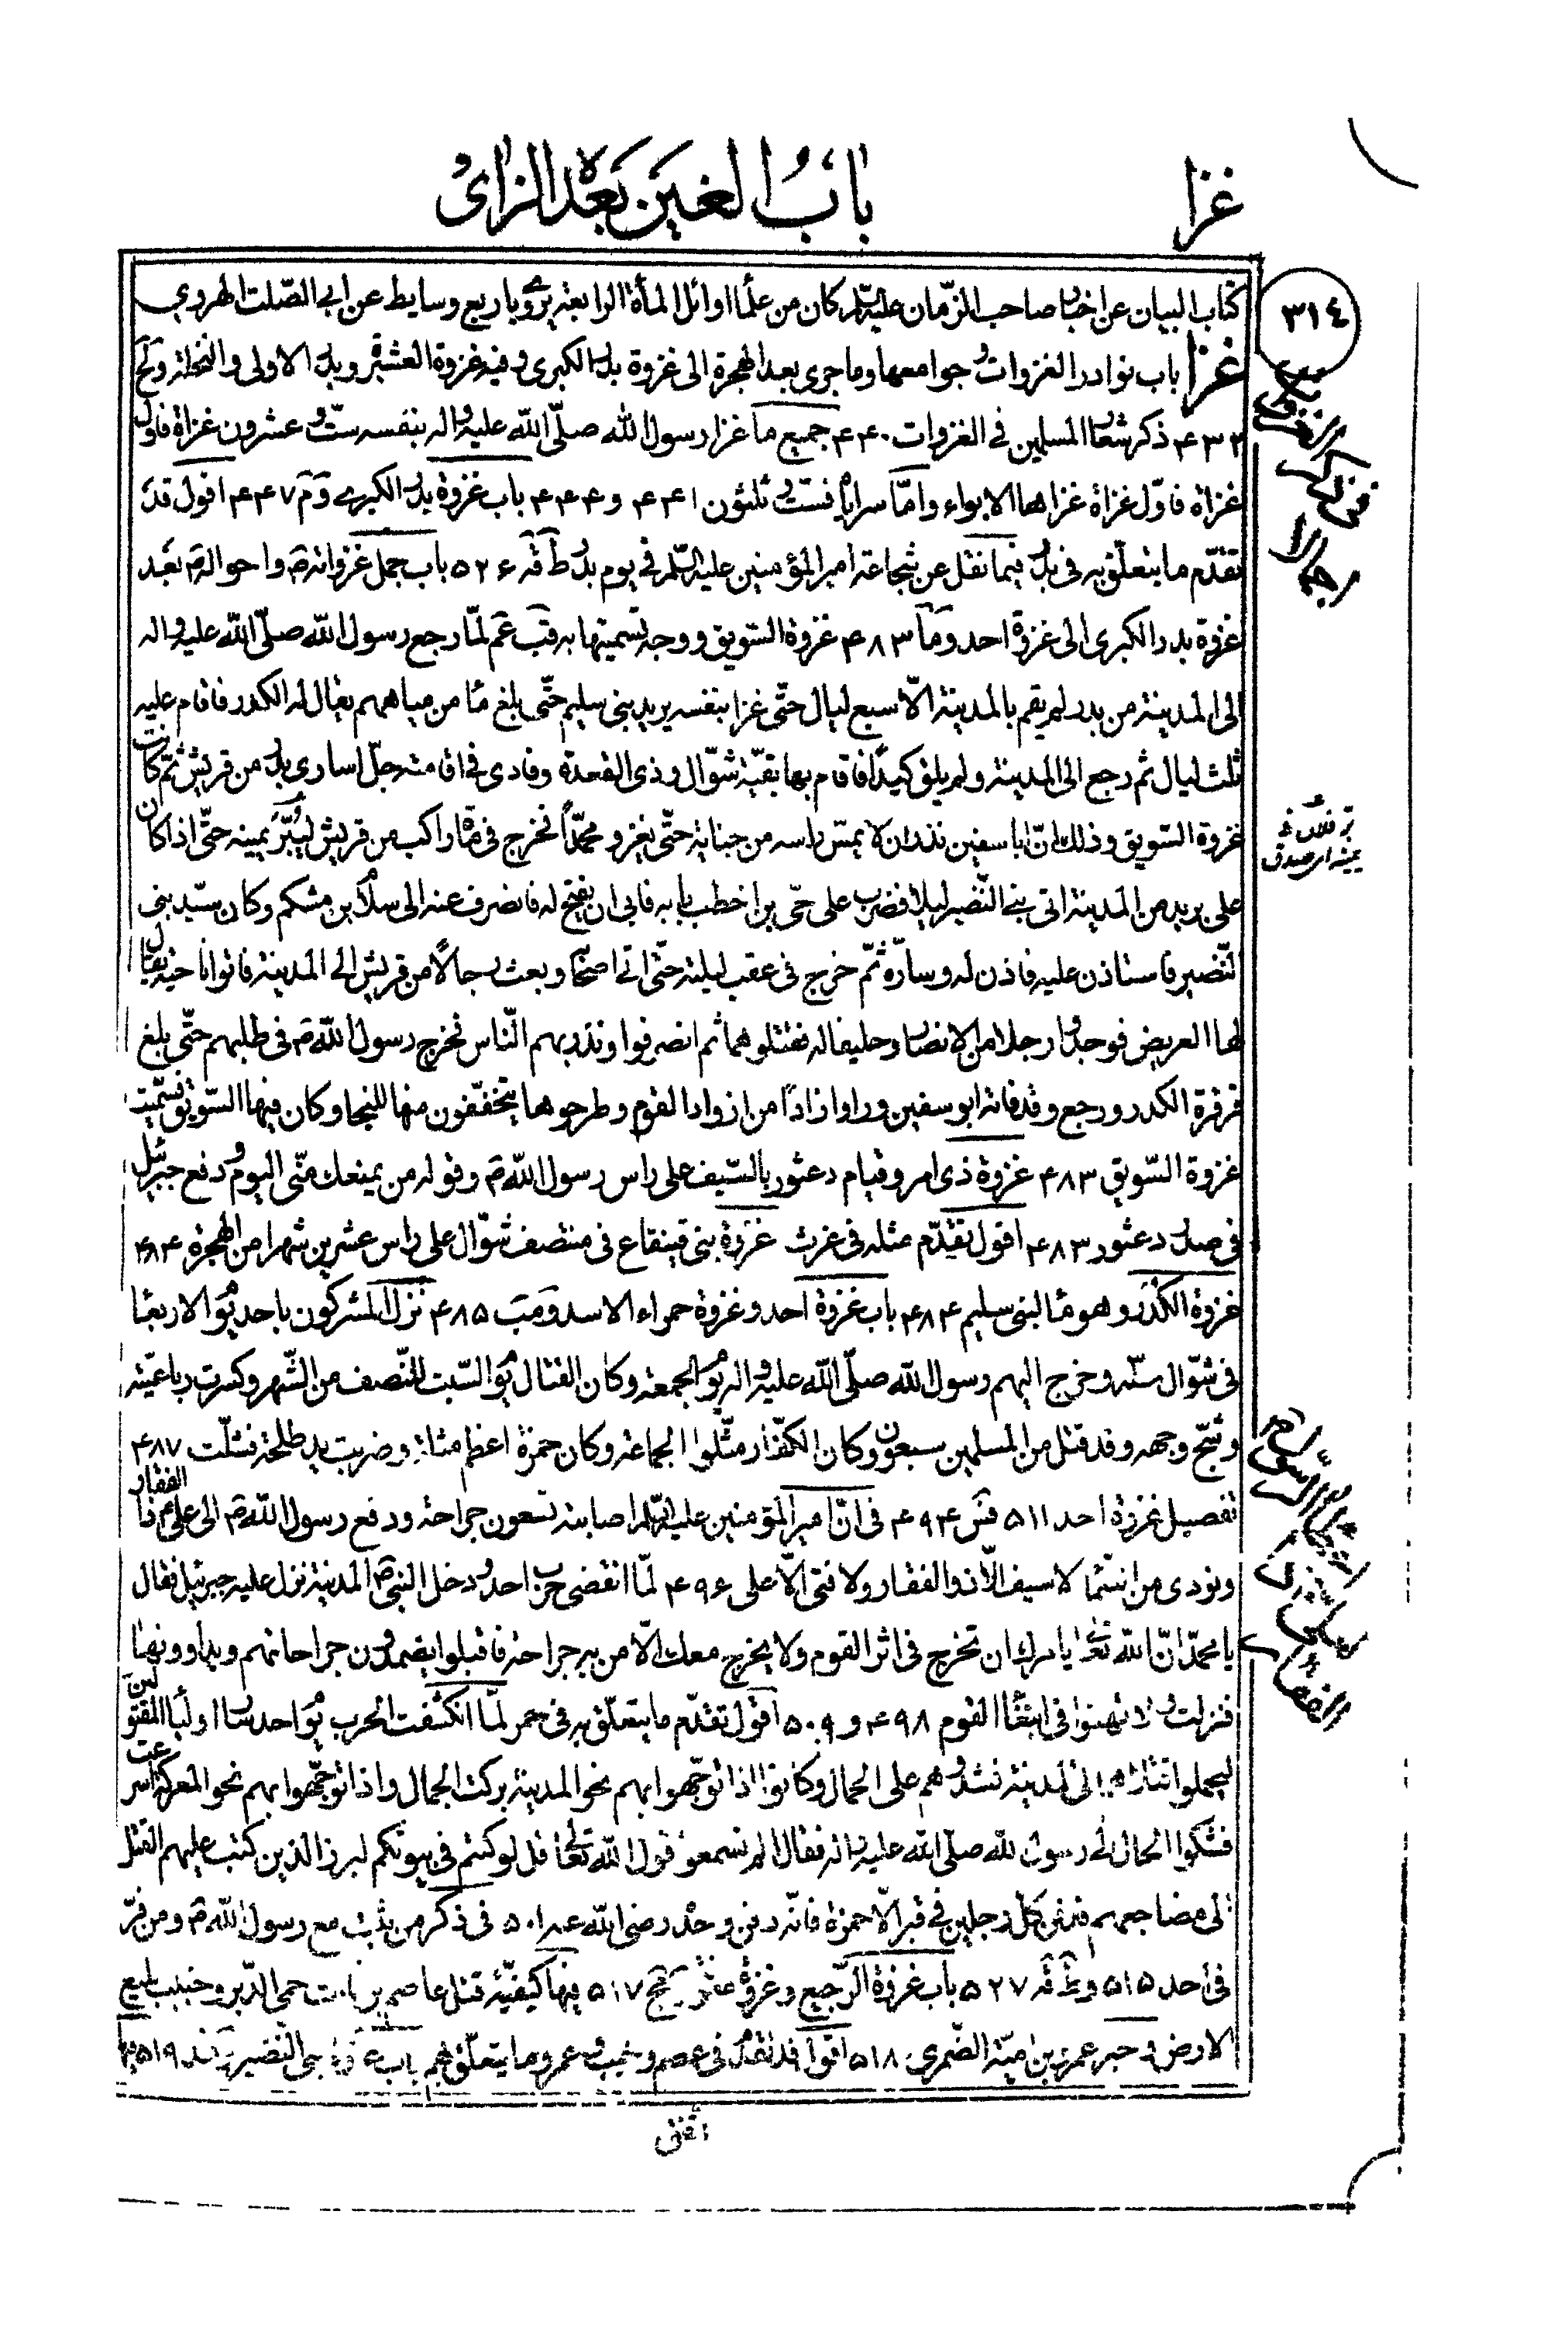 غزا
باب الغين بعده الزاي
٣١٤
كتاب البيان عن اخبار صاحب الزّمان عليه السّلام كان من علماء اوائل المأة الرابعة يروي باربع وسايط عن ابي الصّلت الهروي
غزا باب نوادر الغزوات وجوامعها وما جرى بعد الهجرة الى غزوة بدر الكبرى وفيه غزوة العشيرة وبدر الاولى والنخلة
۴٣٣ ذكر شعار المسلمين في الغزوات ۴۴٠ جميع ما غزا رسول الله صلّى الله عليه واله بنفسه ستّ وعشرون غزاة فاوّل
غزاة فاوّل غزاة غزاها الابواء وامّا سراياه فستّ وثلثون ۴۴١ و ۴۴۴ باب غزوة بدر الكبرى ۴۴٧ اقول قد
تقدّم ما يتعلّق به في بدر فيما نقل عن شجاعة امير المؤمنين عليه السّلم في يوم بدر ۵٢۶ باب جمل غزواته واحواله بعد
غزوة بدر الكبرى الى غزوة احد ۴٨٣ غزوة السّويق ووجه تسميتها به لمّا رجع رسول الله صلّى الله عليه واله
الى المدينة من بدر لم يقم بالمدينة الّا سبع ليال حتّى غزا بنفسه يريد بني سليم حتّى بلغ ماء من مياههم يقال له الكدر فاقام عليه
ثلث ليال ثم رجع الى المدينة ولم يلق كيدًا فاقام بها بقيّة شوّال وذي القعدة وفادى في اقامته جلّ اسارى بدر من قريش ثمّ كانت
غزوة السّويق وذلك انّ ابا سفين نذر ان لا يمسّ راسه من جنابة حتّى يغزو محمّدًا فخرج في مأة راكب من قريش ليبرّ يمينه حتّى اذا كان
على بريد من المدينة اتى بني النّضير ليلا فضرب على حيّ بن اخطب بابه فابى ان يفتح له فانصرف عنه الى سلّام بن مشكم وكان سيّد بني
النّضير فاستاذن عليه فاذن له وسارّه ثمّ خرج في عقب ليلته حتّى اتى اصحابه وبعث رجالًا من قريش الى المدينة فاتوا ناحية يقال
لها العريض فوجدوا رجلا من الانصار وحليفا له فقتلوهما ثم انصرفوا ونذر بهم النّاس فخرج رسول الله في طلبهم حتّى بلغ
قرقرة الكدر ورجع وقد فاته ابو سفين وراوا زادًا من ازواد القوم وطرحوها يتخفّفون منها للنجاء وكان فيها السّويق فسمّيت
غزوة السّويق ۴٨٣ غزوة ذي امر وقيام دعثور بالسّيف على راس رسول الله وقوله من يمنعك منّي اليوم ودفع جبرئيل
في صدر دعثور ۴٨٣ اقول تقدّم مثله في غرث غزوة بني قينقاع في منتصف شوّال على راس عشرين شهرا من الهجرة ۴٨۴
غزوة الكدر وهو ماء لبني سليم ۴٨۴ باب غزوة احد وغزوة حمراء الاسد ۴٨۵ نزل المشركون باحد يوم الاربعاء
في شوّال وخرج اليهم رسول الله صلّى الله عليه واله يوم الجمعة وكان القتال يوم السّبت للنّصف من الشّهر وكسرت رباعيّته
وشجّ وجهه وقد قتل من المسلمين سبعون وكان الكفّار مثّلوا الجماعة وكان حمزة اعظم مثلة وضربت يد طلحة فشلّت ۴٨٧
تفصيل غزوة احد ۵١١ ۴٩۴ في انّ امير المؤمنين عليه السّلم اصابته تسعون جراحة ودفع رسول الله الى علي ذا الفقار
ونودي من السّماء لا سيف الّا ذو الفقار ولا فتى الّا علي ۴٩۶ لمّا انقضى حرب احد ودخل النبي المدينة نزل عليه جبرئيل فقال
يا محمّد انّ الله تعالى يامرك ان تخرج في اثر القوم ولا يخرج معك الّا من به جراحة فاقبلوا يضمدون جراحاتهم ويداوونها
فنزلت ولا تهنوا في ابتغاء القوم ۴٩٨ و ۵٠٩ اقول تقدّم ما يتعلّق به في حمر لمّا انكشفت الحرب يوم احد سار اولياء المقتولين
ليحملوا قتلاهم الى المدينة فشدّوهم على الجمال وكانوا اذا توجّهوا بهم نحو المدينة بركت الجمال واذا توجّهوا بهم نحو المعركة اسرعت
فشكوا الحال الى رسول الله صلّى الله عليه واله فقال الم تسمعوا قول الله تعالى قل لو كنتم في بيوتكم لبرز الذين كتب عليهم القتل
الى مضاجعهم فدفن كلّ رجلين في قبر الّا حمزة فانّه دفن وحده رضي الله عنه ۵٠١ في ذكر من ثبت مع رسول الله ومن فرّ
في احد ۵١۵ ۵٢٧ باب غزوة الرّجيع وغزوة معونة ۵١٧ فيها كيفيّة قتل عاصم بن ثابت حمي الدّبر وخبيب بليع
الارض وخبر عمرو بن اميّة الضّمري ۵١٨ اقول قد تقدّم في عصم وخبب وعمر وما يتعلّق بهم باب غزوة بني النّضير ۵١٩
في ذكر الغزوات اجمالا